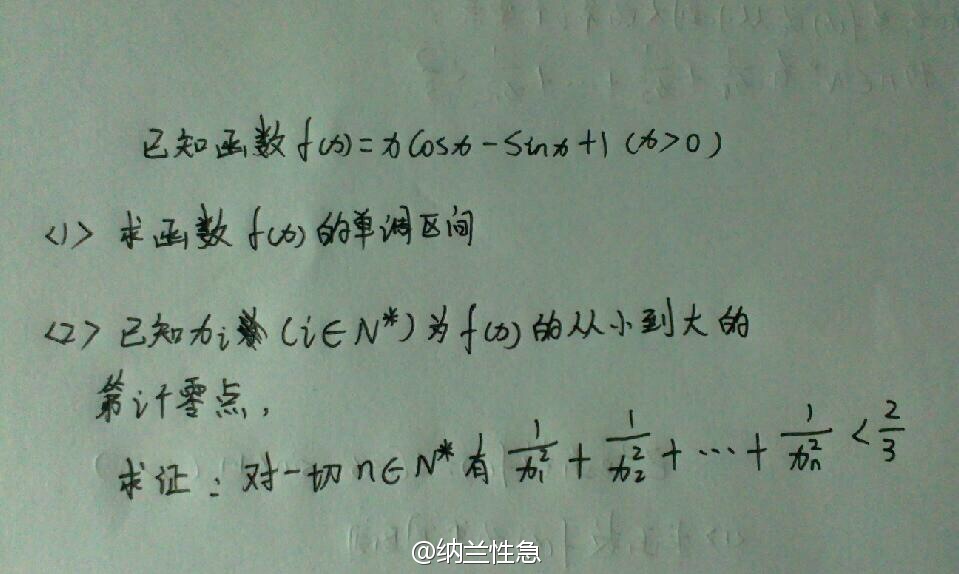 已知函数 f(x)=xcosx-sinx+1 (x>0)
<1> 求函数 f(x) 的单调区间
<2> 已知 xᵢ (i∈N*) 为 f(x) 的从小到大的
第 i 个零点,
求证:对一切 n∈N* 有 1/x₁² + 1/x₂² + ··· + 1/xₙ² < 2/3
@纳兰性急